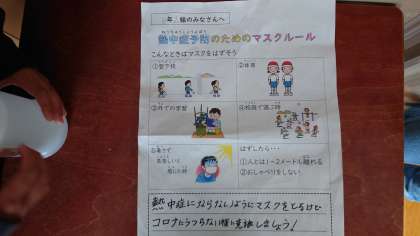 年 組のみなさんへ
ねっちゅうしょうよぼう
熱中症予防のためのマスクルール
こんなときはマスクをはずそう
①登下校
②体育
③外での学習
④校庭で遊ぶ時
⑤暑さで
息苦しいと
感じた時
はずしたら…
①人とは1~2メートル離れる
②おしゃべりをしない
熱中症にならないようにマスクをとるけど
コロナにうつらない様に実施しましょう!